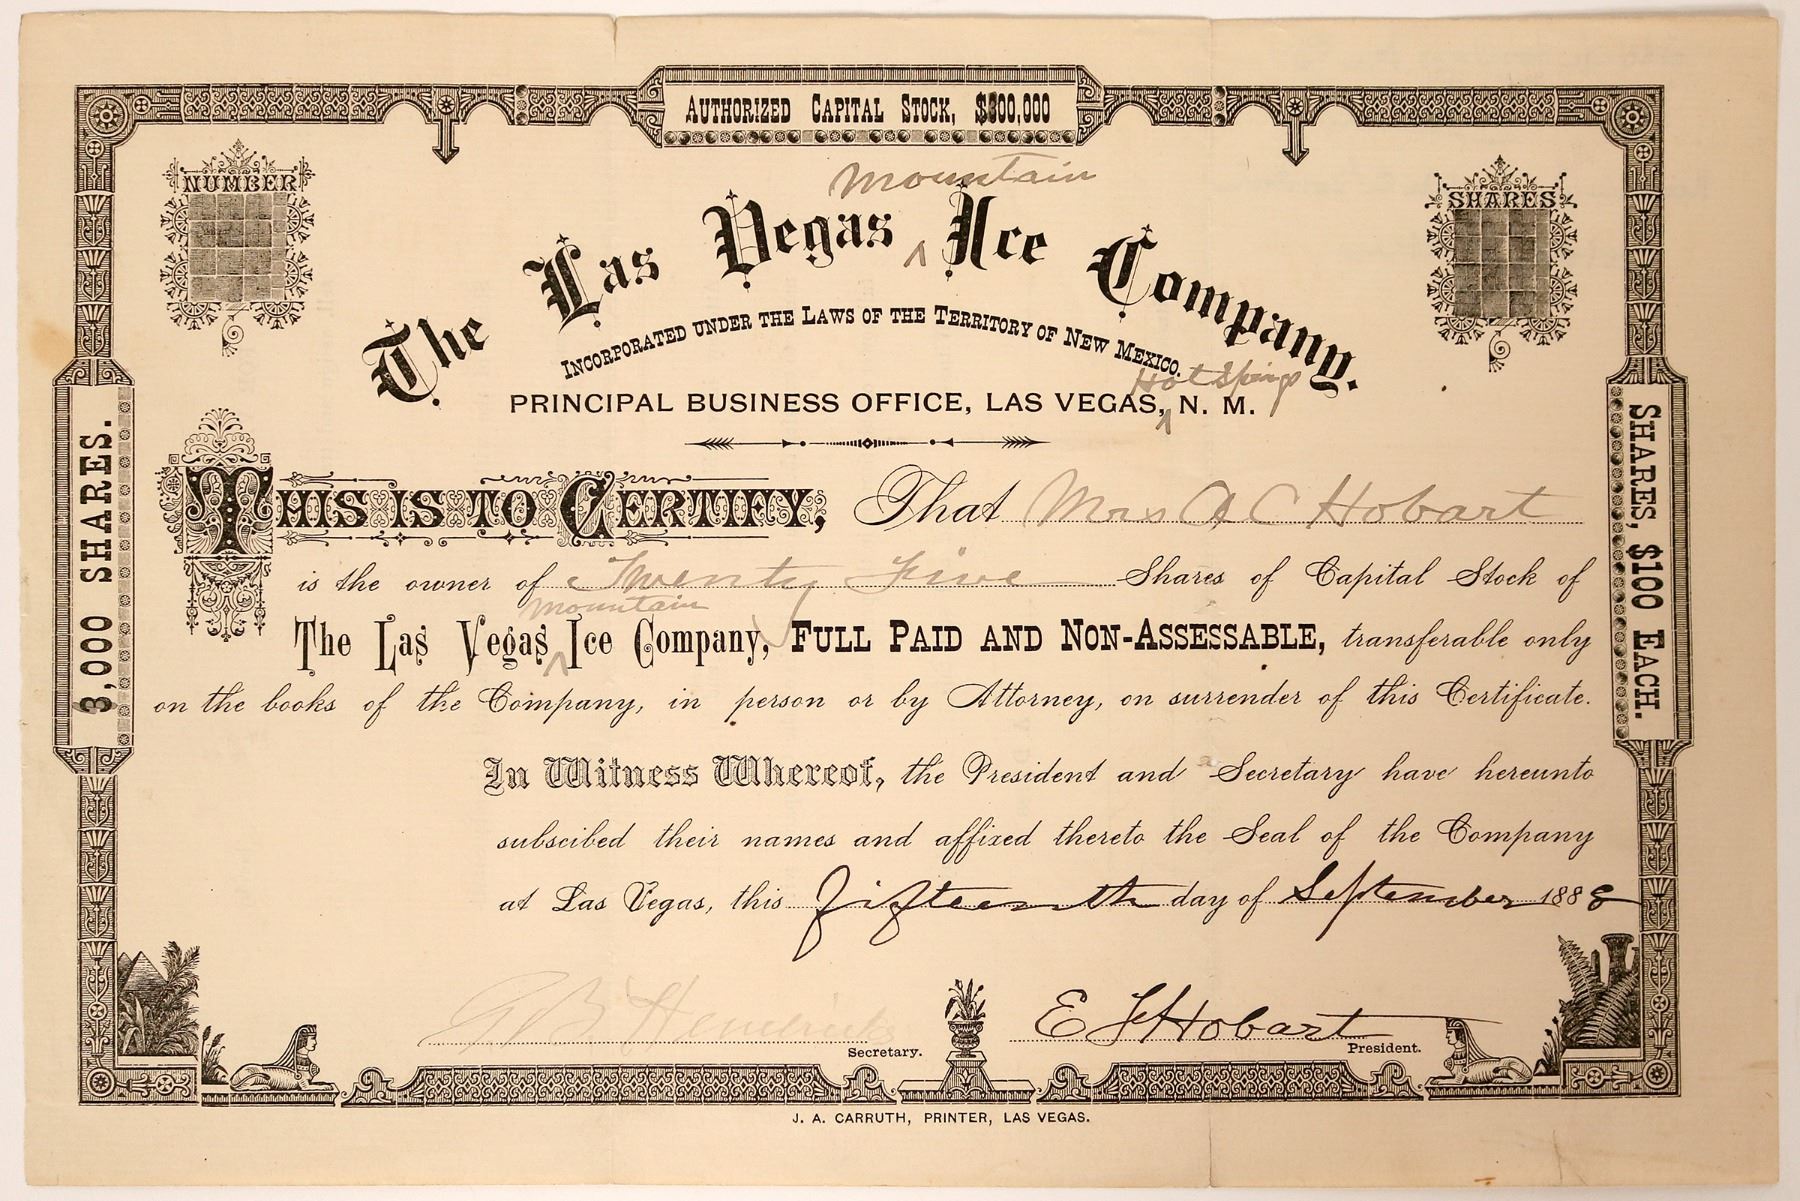 AUTHORIZED CAPITAL STOCK, $300,000
NUMBER
SHARES
Mountain
The Las Vegas ^ Ice Company.
INCORPORATED UNDER THE LAWS OF THE TERRITORY OF NEW MEXICO.
Hot Springs
PRINCIPAL BUSINESS OFFICE, LAS VEGAS, ^ N. M.
3,000 SHARES.
SHARES, $100 EACH.
THIS IS TO CERTIFY, That Mrs A C Hobart
is the owner of Twenty Five Shares of Capital Stock of
Mountain
The Las Vegas ^ Ice Company, FULL PAID AND NON-ASSESSABLE, transferable only
on the books of the Company, in person or by Attorney, on surrender of this Certificate.
In Witness Whereof, the President and Secretary have hereunto
subscibed their names and affixed thereto the Seal of the Company
at Las Vegas, this fifteenth day of September 1888
G B Hendricks
E F Hobart
Secretary.
President.
J. A. CARRUTH, PRINTER, LAS VEGAS.